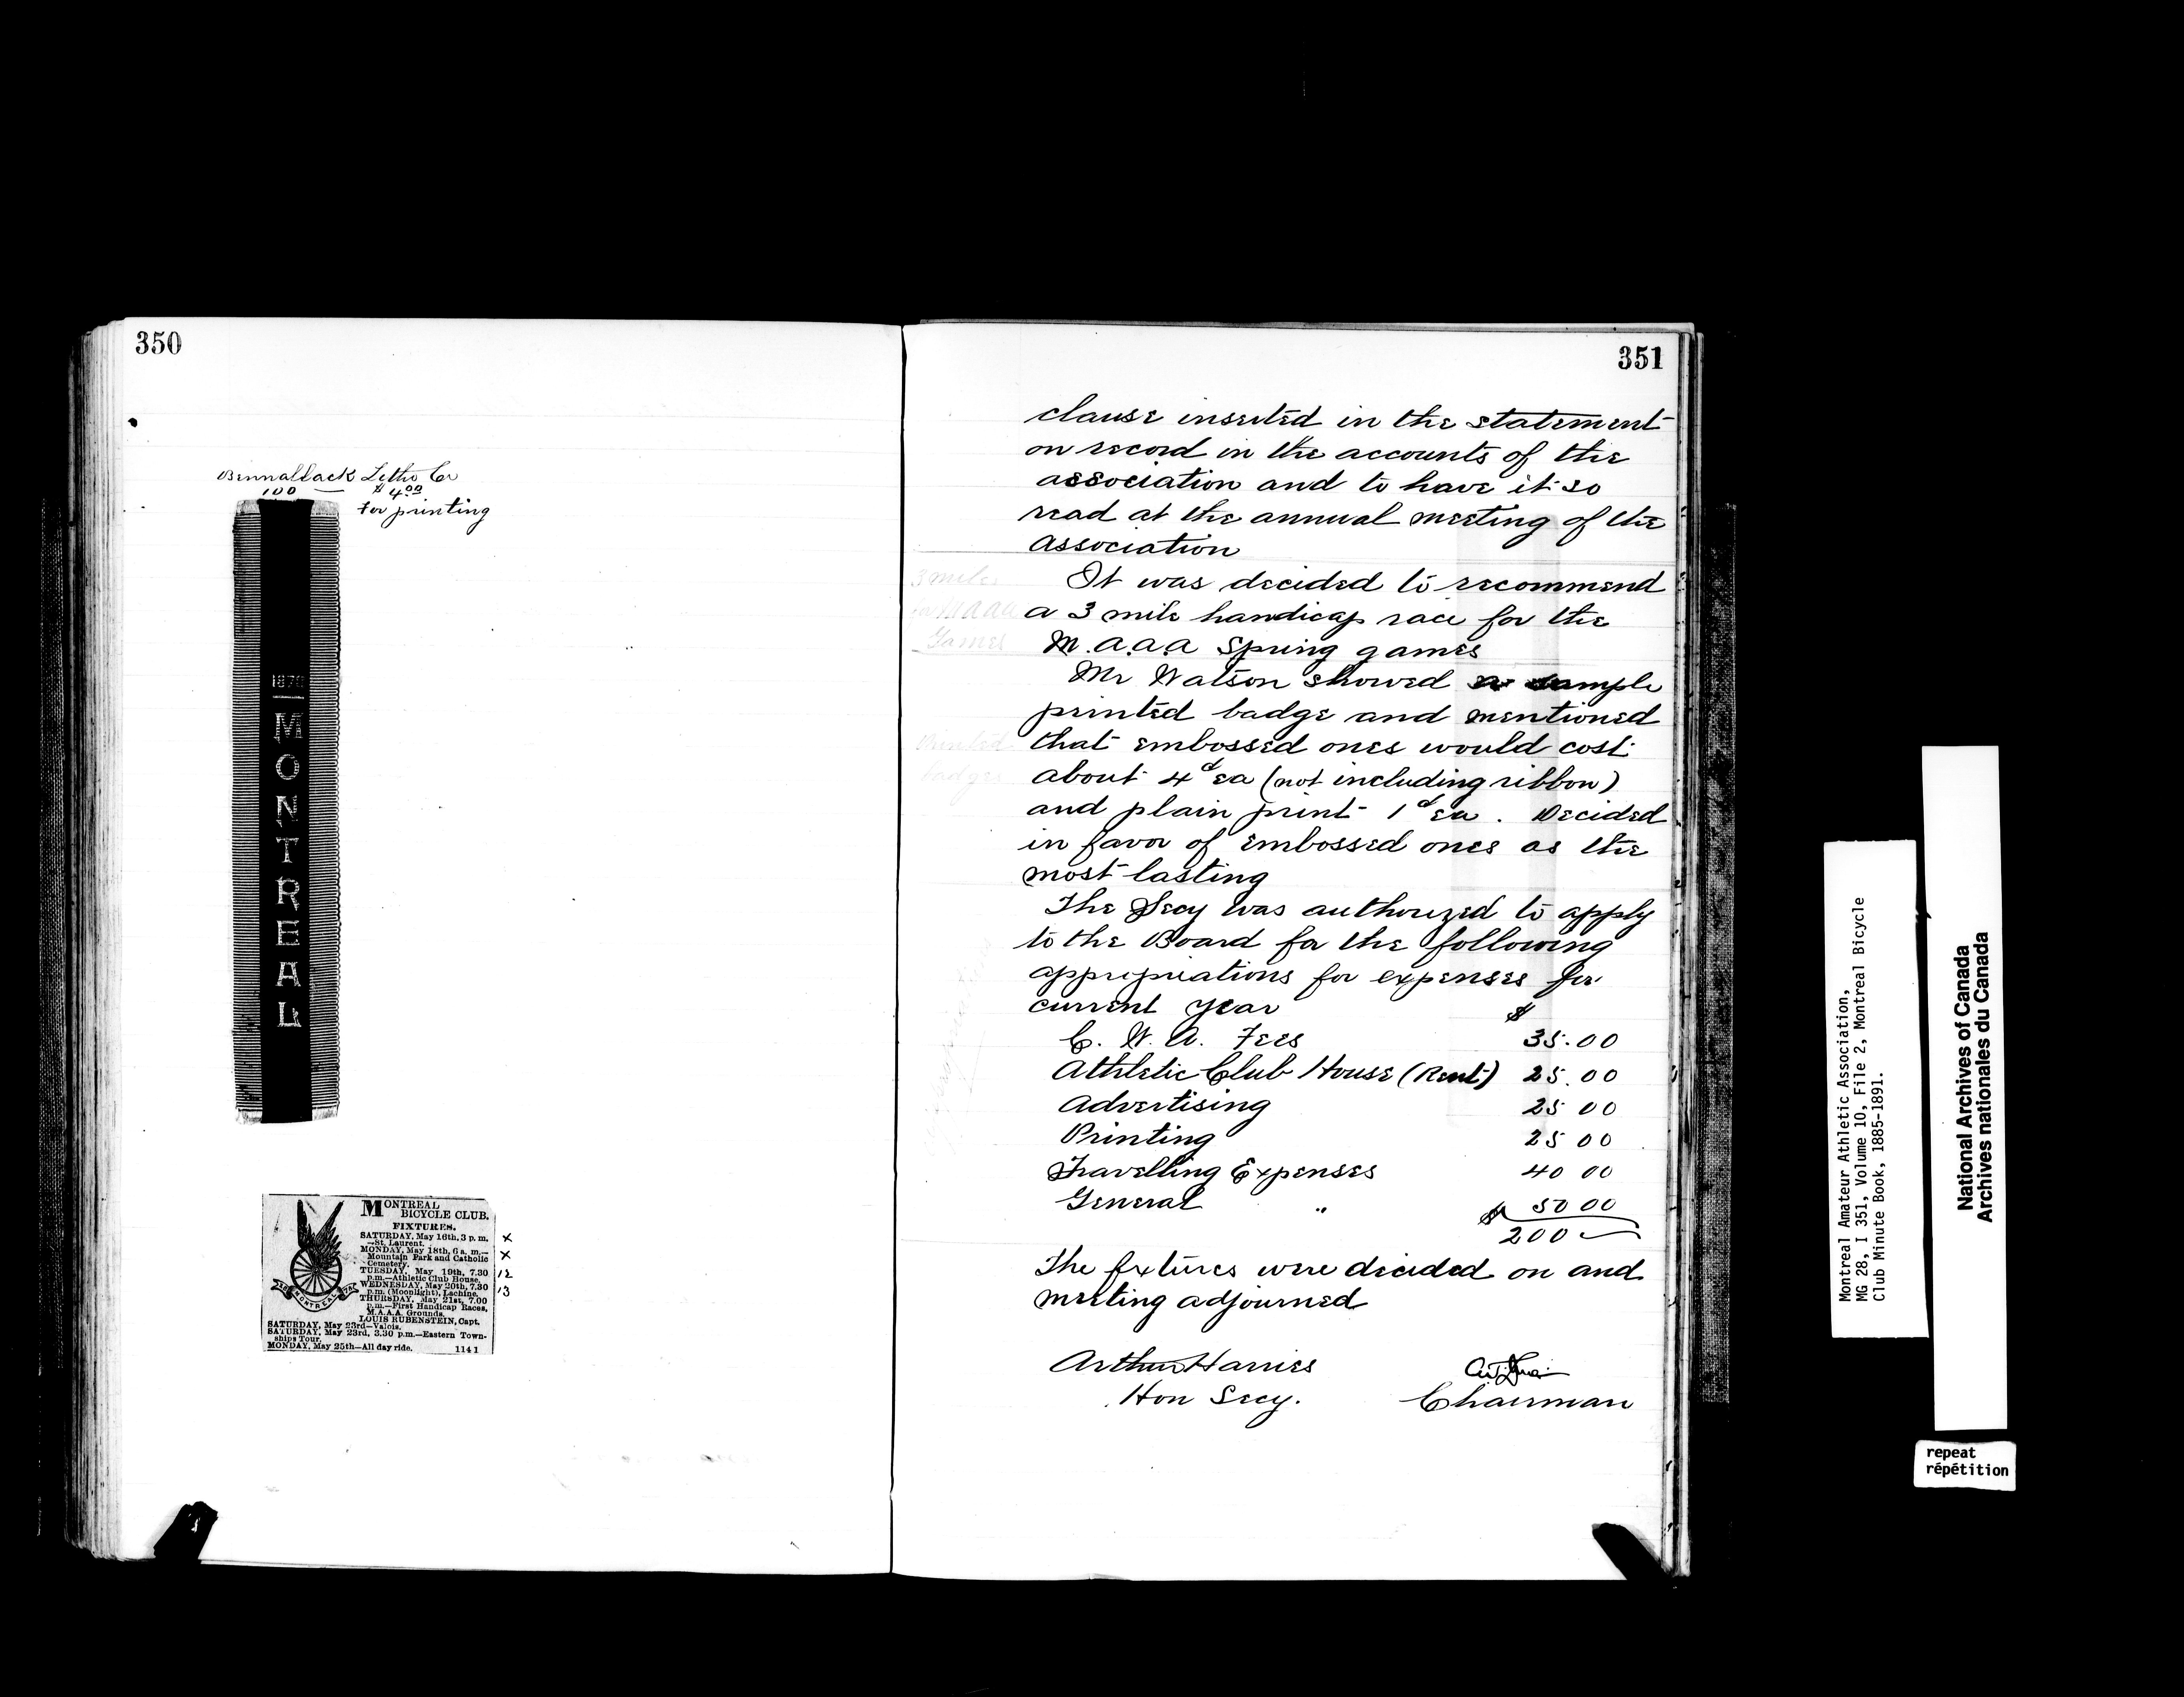 350
Bennallack Litho Co
100 — $4.00
for printing
1878
MONTREAL
MONTREAL
BICYCLE CLUB.
FIXTURES.
SATURDAY, May 16th, 3 p. m.
—St. Laurent. x
MONDAY, May 18th, 6 a. m.— x
Mountain Park and Catholic
Cemetery.
TUESDAY, May 19th, 7.30 12
p.m.—Athletic Club House.
WEDNESDAY, May 20th, 7.30 13
p.m. (Moonlight), Lachine.
THURSDAY, May 21st, 7.00
p.m.—First Handicap Races,
M.A.A.A. Grounds.
LOUIS RUBENSTEIN, Capt.
SATURDAY, May 23rd—Valois.
SATURDAY, May 23rd, 3.30 p.m.—Eastern Town-
ships Tour.
MONDAY, May 25th—All day ride. 1141
MONTREAL
351
clause inserted in the statement
on record in the accounts of the
association and to have it so
read at the annual meeting of the
association
3 mile
in MAAA
Games
It was decided to recommend
a 3 mile handicap race for the
M.A.A.A Spring games
Mr Watson showed a sample
printed badge and mentioned
Printed
badges
that embossed ones would cost
about 4d ea (not including ribbon)
and plain print 1d ea. Decided
in favor of embossed ones as the
most lasting
The Secy was authorized to apply
to the Board for the following
appropriations for expenses for
current year $
C. W. A. Fees 35.00
Athletic Club House (Rent) 25.00
Advertising 25 00
Printing 25 00
Travelling Expenses 40 00
General " 50 00
$ 200
The fixtures were decided on and
meeting adjourned
Arthur Harries
Hon Secy. Chairman
Montreal Amateur Athletic Association,
MG 28, I 351, Volume 10, File 2, Montreal Bicycle
Club Minute Book, 1885-1891.
National Archives of Canada
Archives nationales du Canada
repeat
répétition